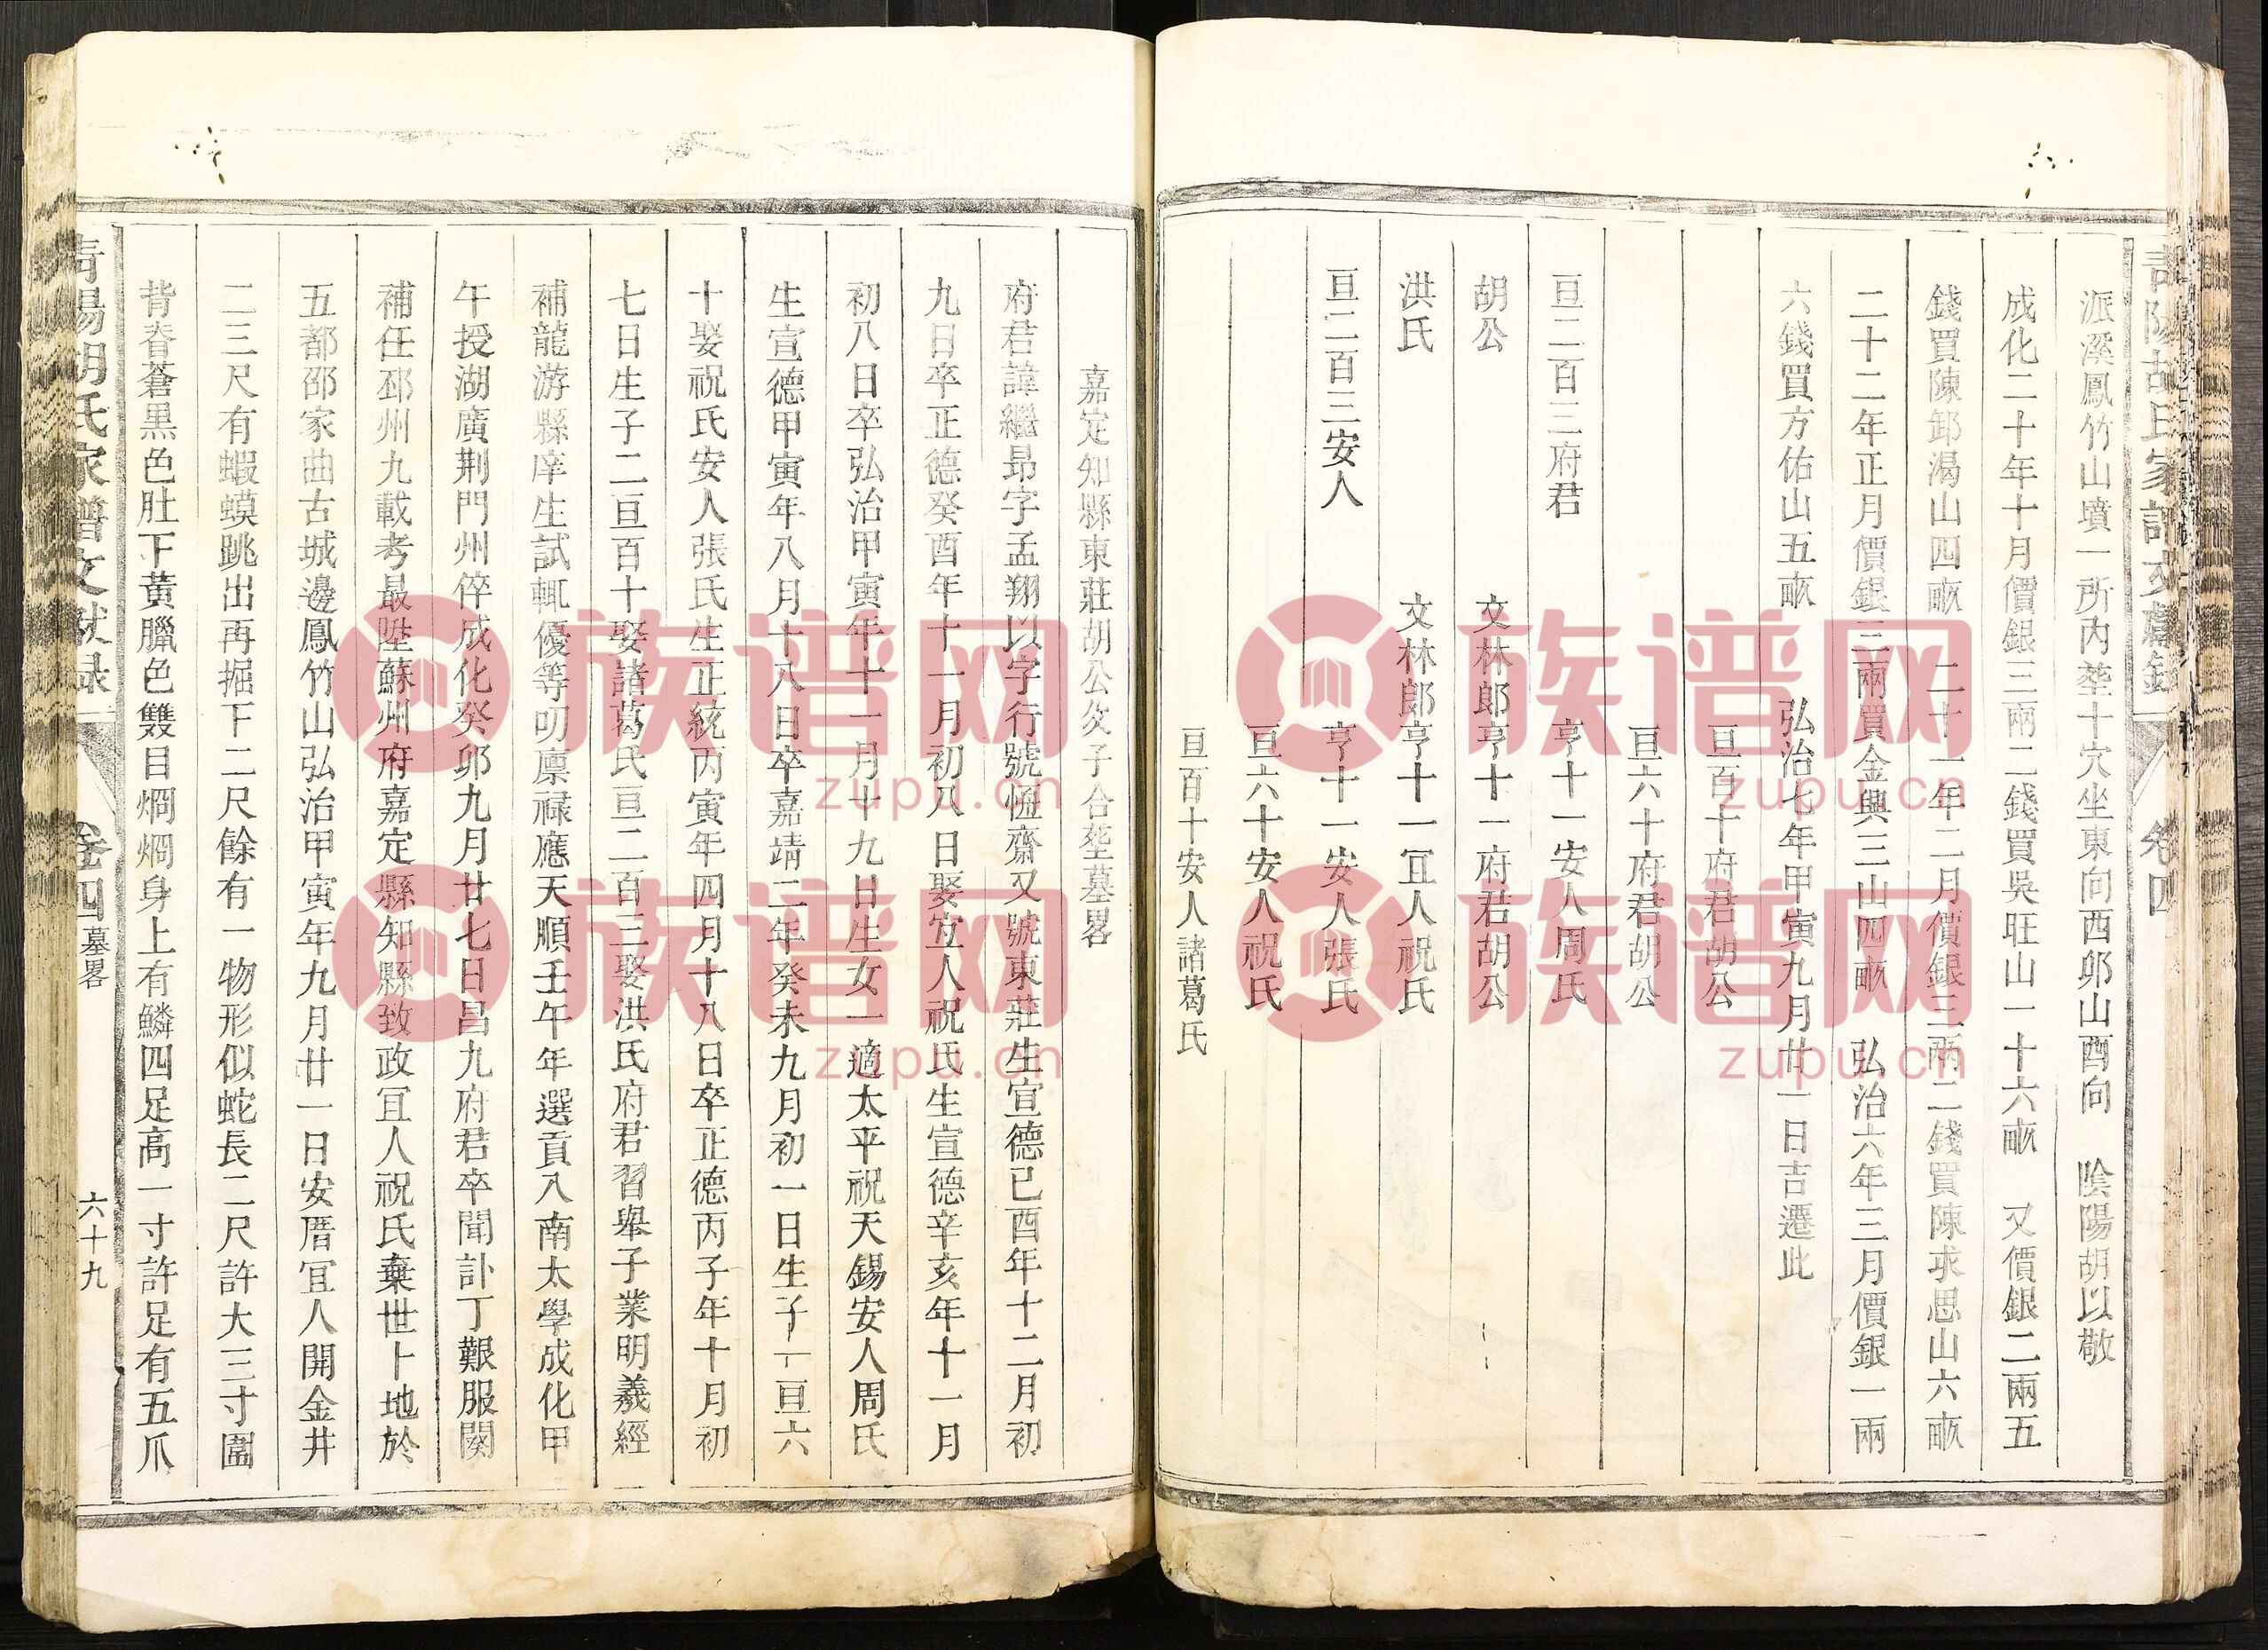 派溪鳳竹山墳一所内塟十穴坐東向西卯山酉向　陰陽胡以敬
成化二十年十月價銀三兩二錢買吳旺山一十六畝　又價銀二兩五
錢買陳鄣渴山四畝　二十一年二月價銀三兩二錢買陳求思山六畝
二十二年正月價銀三兩買金興三山四畝　弘治六年三月價銀一兩
六錢買方佑山五畝　弘治七年甲寅九月廿一日吉遷此
亘百十府君胡公
亘六十府君胡公
亘二百三府君　亨十一安人周氏
胡公　文林郎亨十一府君胡公
洪氏　文林郎亨十一宜人祝氏
亘二百三安人　亨十一安人張氏
亘六十安人祝氏
亘百十安人諸葛氏
嘉定知縣東莊胡公父子合塟墓畧
府君諱繼昻字孟翔以字行號恆齋又號東莊生宣德已酉年十二月初
九日卒正德癸酉年十一月初八日娶宜人祝氏生宣德辛亥年十一月
初八日卒弘治甲寅年十一月十九日生女一適太平祝天錫安人周氏
生宣德甲寅年八月十八日卒嘉靖二年癸未九月初一日生子一亘六
十娶祝氏安人張氏生正統丙寅年四月十八日卒正德丙子年十月初
七日生子二亘百十娶諸葛氏亘二百三娶洪氏府君習舉子業明羲經
補龍游縣庠生試輒優等叨廪祿應天順壬午年選貢入南太學成化甲
午授湖廣荆門州倅成化癸卯九月廿七日昌九府君卒聞訃丁艱服闋
補任邳州九載考最陞蘇州府嘉定縣知縣致政宜人祝氏棄世卜地於
五都邵家曲古城邊鳳竹山弘治甲寅年九月廿一日安厝宜人開金井
二三尺有蝦蟆跳出再掘下二尺餘有一物形似蛇長二尺許大三寸圍
背脊蒼黑色肚下黃臘色雙目烱烱身上有鱗四足高一寸許足有五爪
青陽胡氏家譜文献録　卷四　墓畧　六十九
族谱网
zupu.cn